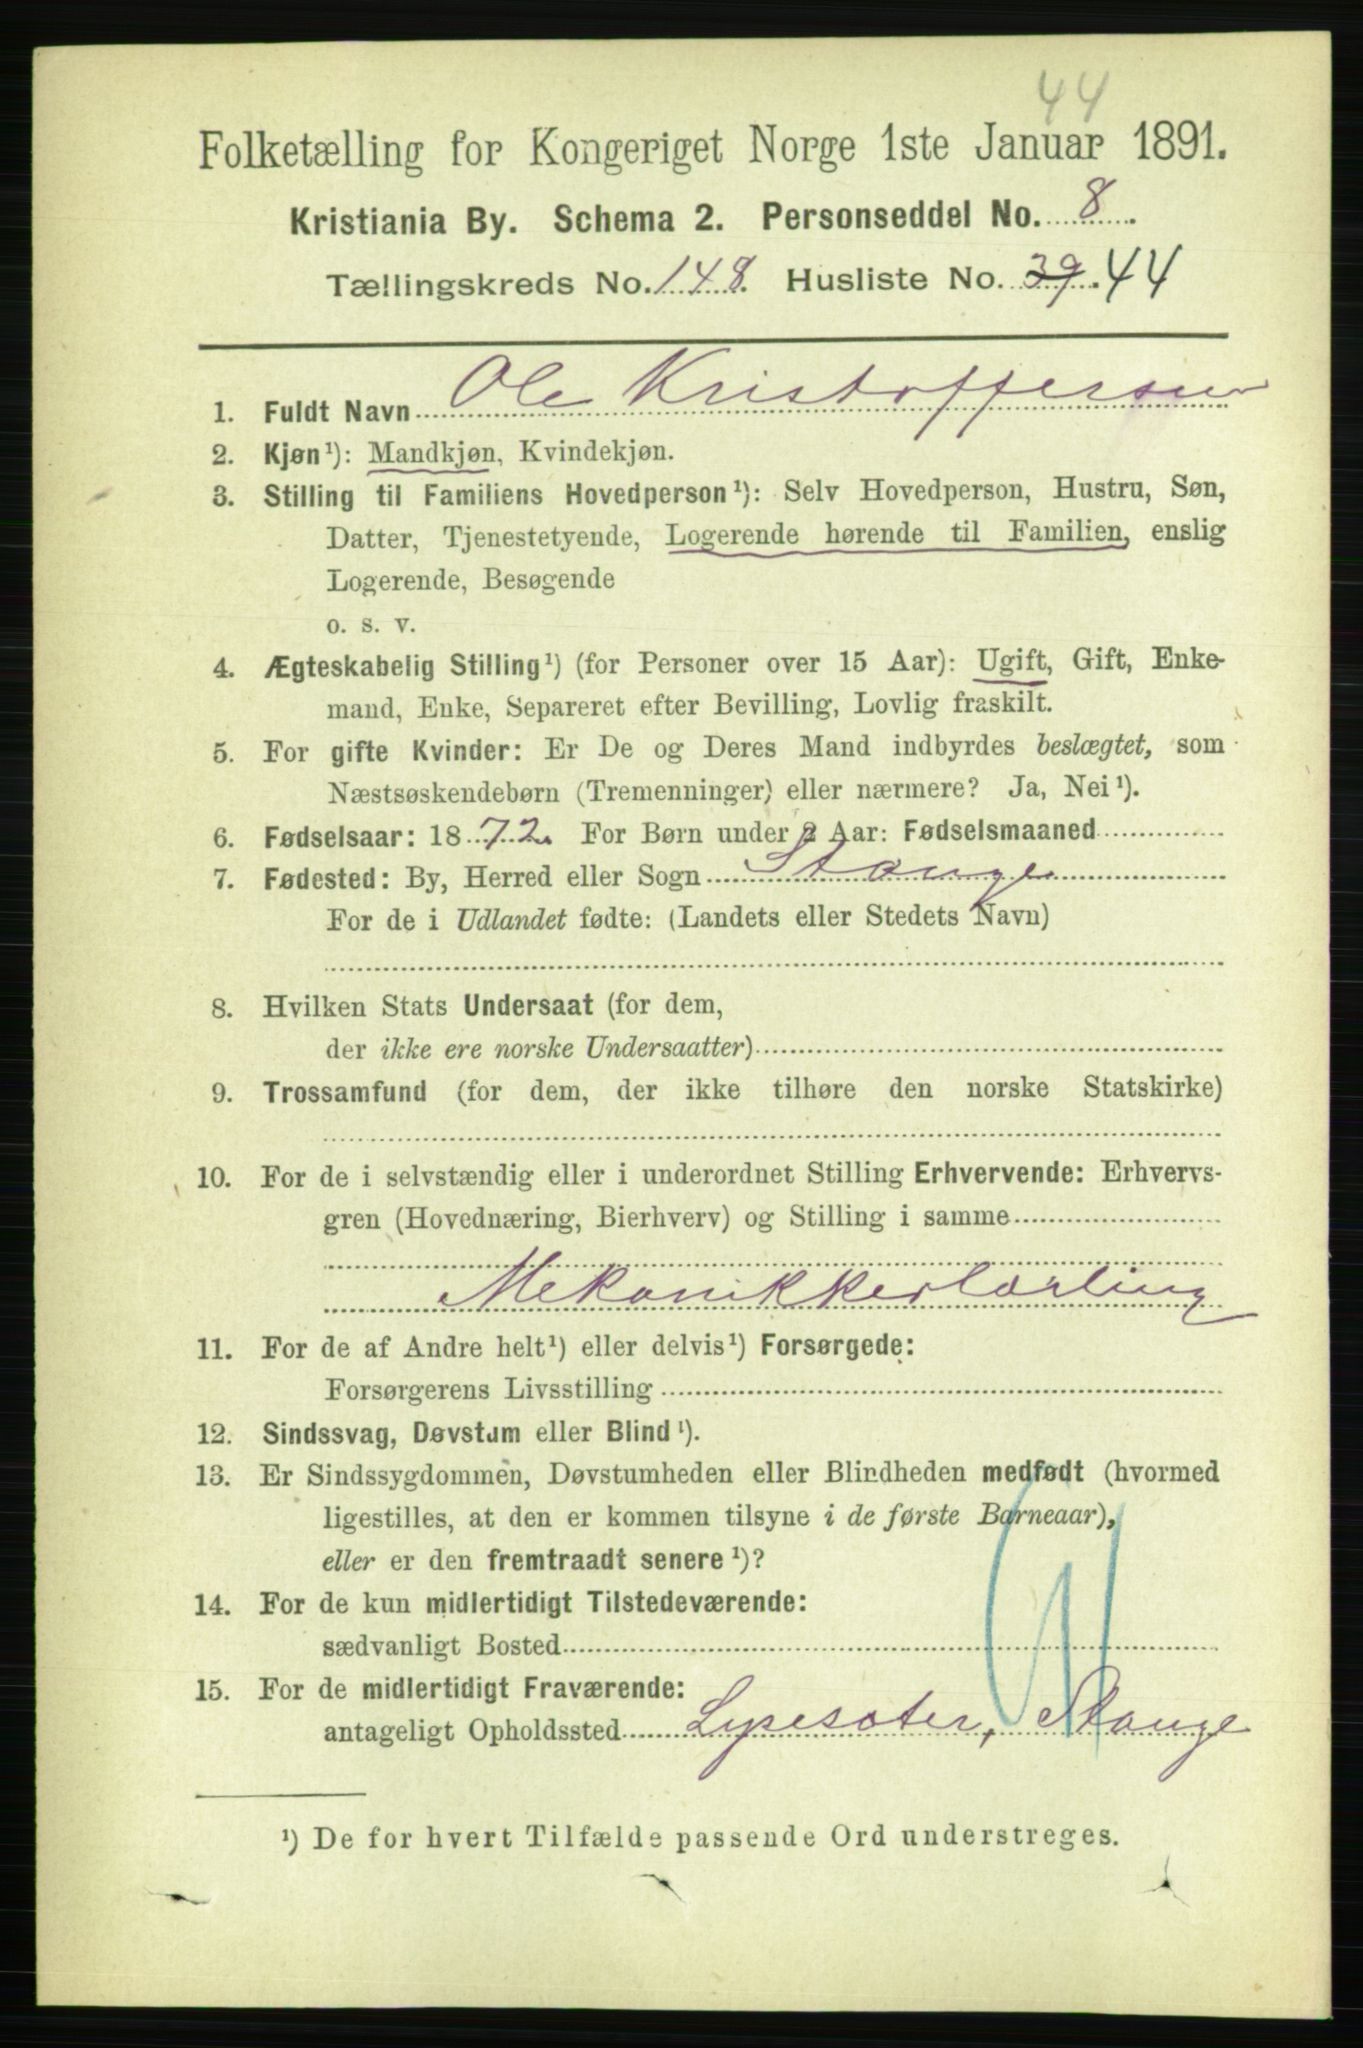 44
Folketælling for Kongeriget Norge 1ste Januar 1891.
Kristiania By. Schema 2. Personseddel No. 8.
Tællingskreds No. 148. Husliste No. 39. 44
1. Fuldt Navn Ole Kristoffersen
2. Kjøn¹): Mandkjøn, Kvindekjøn.
3. Stilling til Familiens Hovedperson¹): Selv Hovedperson, Hustru, Søn,
Datter, Tjenestetyende, Logerende hørende til Familien, enslig
Logerende, Besøgende
o. s. v.
4. Ægteskabelig Stilling¹) (for Personer over 15 Aar): Ugift, Gift, Enke-
mand, Enke, Separeret efter Bevilling, Lovlig fraskilt.
5. For gifte Kvinder: Er De og Deres Mand indbyrdes beslægtet, som
Næstsøskendebørn (Tremenninger) eller nærmere? Ja, Nei¹).
6. Fødselsaar: 1872. For Børn under 2 Aar: Fødselsmaaned
7. Fødested: By, Herred eller Sogn Stange
For de i Udlandet fødte: (Landets eller Stedets Navn)
8. Hvilken Stats Undersaat (for dem,
der ikke ere norske Undersaatter)
9. Trossamfund (for dem, der ikke tilhøre den norske Statskirke)
10. For de i selvstændig eller i underordnet Stilling Erhvervende: Erhvervs-
gren (Hovednæring, Bierhverv) og Stilling i samme
Mekanikkerlærling
11. For de af Andre helt¹) eller delvis¹) Forsørgede:
Forsørgerens Livsstilling
12. Sindssvag, Døvstum eller Blind¹).
13. Er Sindssygdommen, Døvstumheden eller Blindheden medfødt (hvormed
ligestilles, at den er kommen tilsyne i de første Barneaar),
eller er den fremtraadt senere¹)?
14. For de kun midlertidigt Tilstedeværende:
sædvanligt Bosted
15. For de midlertidigt Fraværende:
antageligt Opholdssted Lysesæter, Stange
¹) De for hvert Tilfælde passende Ord understreges.